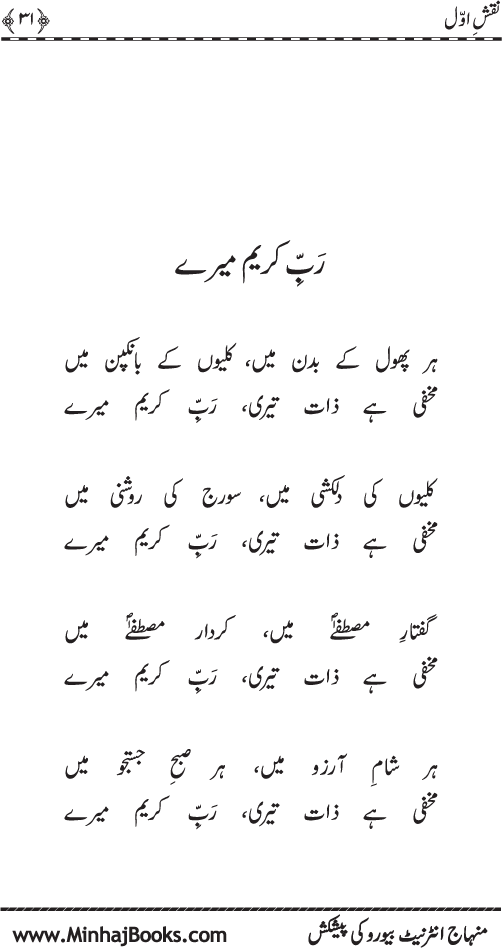 نقشِ اوّل
﴿۳۱﴾
رَبِّ کریم میرے
ہر پھول کے بدن میں، کلیوں کے بانکپن میں
مخفی ہے ذات تیری، رَبِّ کریم میرے
کلیوں کی دلکشی میں، سورج کی روشنی میں
مخفی ہے ذات تیری، رَبِّ کریم میرے
گفتارِ مصطفیؐ میں، کردار مصطفیؐ میں
مخفی ہے ذات تیری، رَبِّ کریم میرے
ہر شامِ آرزو میں، ہر صبحِ جستجو میں
مخفی ہے ذات تیری، رَبِّ کریم میرے
منہاج انٹرنیٹ بیورو کی پیشکش
www.MinhajBooks.com